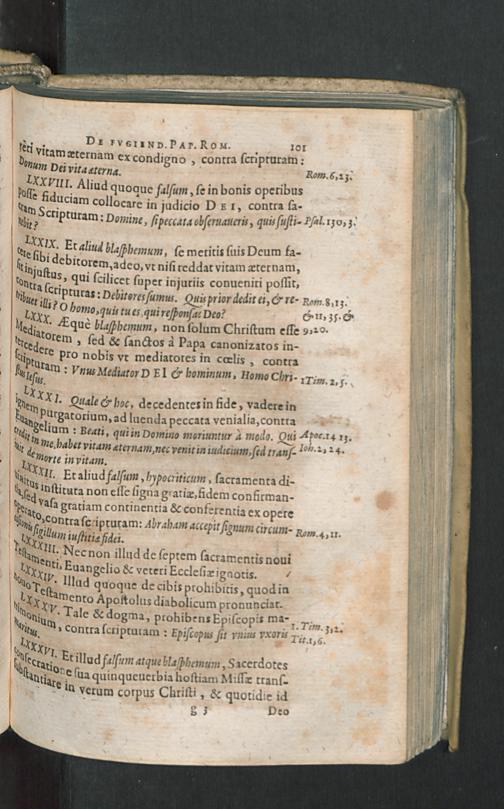 DE FVGIEND. PAP. ROM. 101
rēti vitam æternam ex condigno, contra scripturam:
Donum Dei vita æterna. Rom. 6, 23.
LXXVIII. Aliud quoque falsum, se in bonis operibus
posse fiduciam collocare in judicio DEI, contra sa-
cram Scripturam: Domine, si peccata observaveris, quis susti- Psal. 130, 3.
nebit?
LXXIX. Et aliud blasphemum, se meritis suis Deum fa-
cere sibi debitorem, adeo, vt nisi reddat vitam æternam,
sit injustus, qui scilicet super injuriis conveniri possit,
contra scripturas: Debitores sumus. Quis prior dedit ei, & re- Rom. 8, 13.
tribuet illi? O homo, quis tu es, qui responsas Deo? & 11, 35. &
LXXX. Æquè blasphemum, non solum Christum esse 9, 20.
Mediatorem, sed & sanctos à Papa canonizatos in-
tercedere pro nobis vt mediatores in cœlis, contra
scripturam: Vnus Mediator DEI & hominum, Homo Chri- 1 Tim. 2, 5.
stus Iesus.
LXXXI. Quale & hoc, decedentes in fide, vadere in
ignem purgatorium, ad luenda peccata venialia, contra
Euangelium: Beati, qui in Domino moriuntur à modo. Qui Apoc. 14 13.
credit in me, habet vitam æternam, nec venit in iudicium, sed trans- Ioh. 2, 24.
iuit de morte in vitam.
LXXXII. Et aliud falsum, hypocriticum, sacramenta di-
vinitus instituta non esse signa gratiæ, fidem confirman-
tia, sed vasa gratiam continentia & conferentia ex opere
operato, contra scripturam: Abraham accepit signum circum- Rom. 4, 11.
cisionis sigillum iustitiæ fidei.
LXXXIII. Nec non illud de septem sacramentis noui
Testamenti, Euangelio & veteri Ecclesiæ ignotis.
LXXXIV. Illud quoque de cibis prohibitis, quod in
nouo Testamento Apostolus diabolicum pronunciat.
LXXXV. Tale & dogma, prohibens Episcopis ma-
trimonium, contra scripturam: Episcopus sit vnius vxoris 1. Tim. 3, 2.
maritus. Tit. 1, 6.
LXXXVI. Et illud falsum atque blasphemum, Sacerdotes
consecratione sua quinqueuerbia hostiam Missæ trans-
substantiare in verum corpus Christi, & quotidie id
g 3 Deo